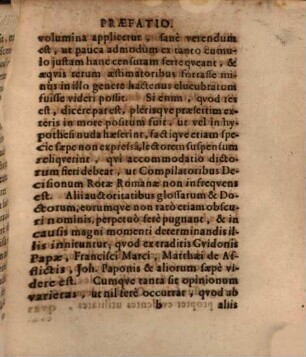 PRÆFATIO.
volumina applicetur, sanè verendum
est, ut pauca admodum ex tanto cumu-
lo justam hanc censuram ferre queant, &
æqvis rerum æstimatoribus forrasse mi-
nus in illo genere hactenus elucubratum
fuisse videri possit. Si enim, qvod res
est, dicere par est, plerisqve præsertim ex-
teris in more positum fuit, ut vel in hy-
pothesi nuda hæserint, factiqve etiam spe-
cie sæpe non expressâ, lectorem suspensum
reliqverint, qvi accommodatio dicto-
rum fieri debeat, ut Compilatoribus De-
cisionum Rotæ Romanæ non infreqvens
est. Alii auctoritatibus glossarum & Do-
ctorum, eorumqve non rarò etiam obscu-
ri nominis, perpetuò ferè pugnant, & in
causis magni momenti determinandis il-
lis innituntur, qvod ex traditis Gvidonis
Papæ, Francisci Marci, Matthæi de Af-
flictis, Joh. Paponis & aliorum sæpè vi-
dere est. Cumqve tanta sit opinionum
varietas, ut nil ferè occurrat, qvod ab
b aliis